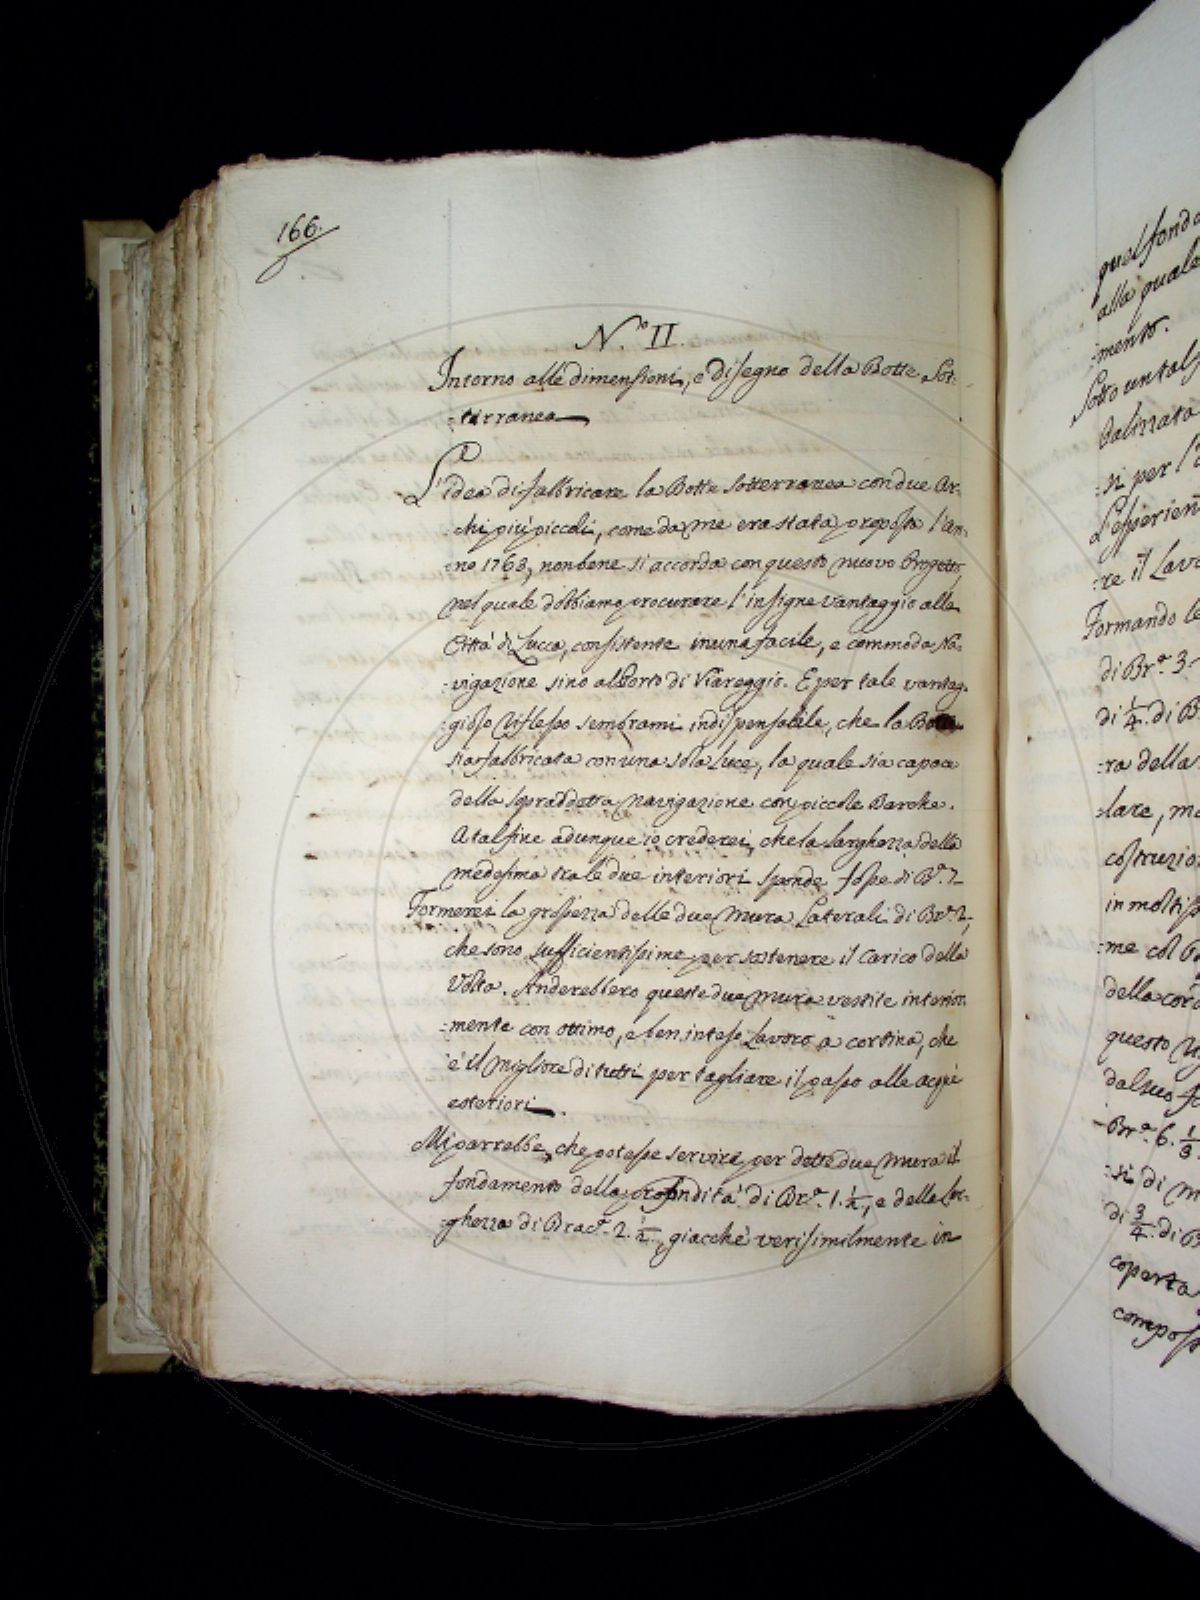 166.
N.º II.
Intorno alle dimensioni, e disegno della Botte Sot:
:terranea
L'idea di fabbricare la Botte Sotterranea con due Ar:
:chi più piccoli, come da me era stata proposta l'an:
:no 1763, non bene si accorda con questo nuovo Progetto,
nel quale dobbiamo procurare l'insigne vantaggio alla
Città di Lucca, consistente in una facile, e commoda Na:
:vigazione sino al Porto di Viareggio. E per tale vantag:
:gioso riflesso sembrami indispensabile, che la Botte
sia fabbricata con una sola Luce, la quale sia capace
della sopraddetta navigazione con piccole Barche.
A tal fine adunque io crederei, che la larghezza della
medesima tra le due interiori sponde fosse di Br.ª 7
Formerei la grossezza delle due Mura Laterali di Br.ª 2,
che sono sufficientissime per sostenere il carico della
Volta. Anderebbero queste due Mura vestite interior:
:mente con ottimo, e ben inteso Lavoro a cortina, che
è il migliore di tutti per tagliare il passo alle acque
esteriori.
Mi parrebbe, che potesse servire per dette due Mura il
fondamento della profondità di Br.ª 1. 1/2, e della lar:
:ghezza di Brac.ª 2. 1/2, giacchè verisimilmente in
quel fondo
alla quale
:mento.
Sotto un tal
:si per l'
L'esperien
:re il Lavo
Formando le
di Br.ª 3.
di 1/4. di B
:ra della
:lare, ma
costruzio
in moltis
:me col
della
questo
dal suo
Br.ª 6. 1/3.
:si di m
di 3/4. di B
coperta
compos